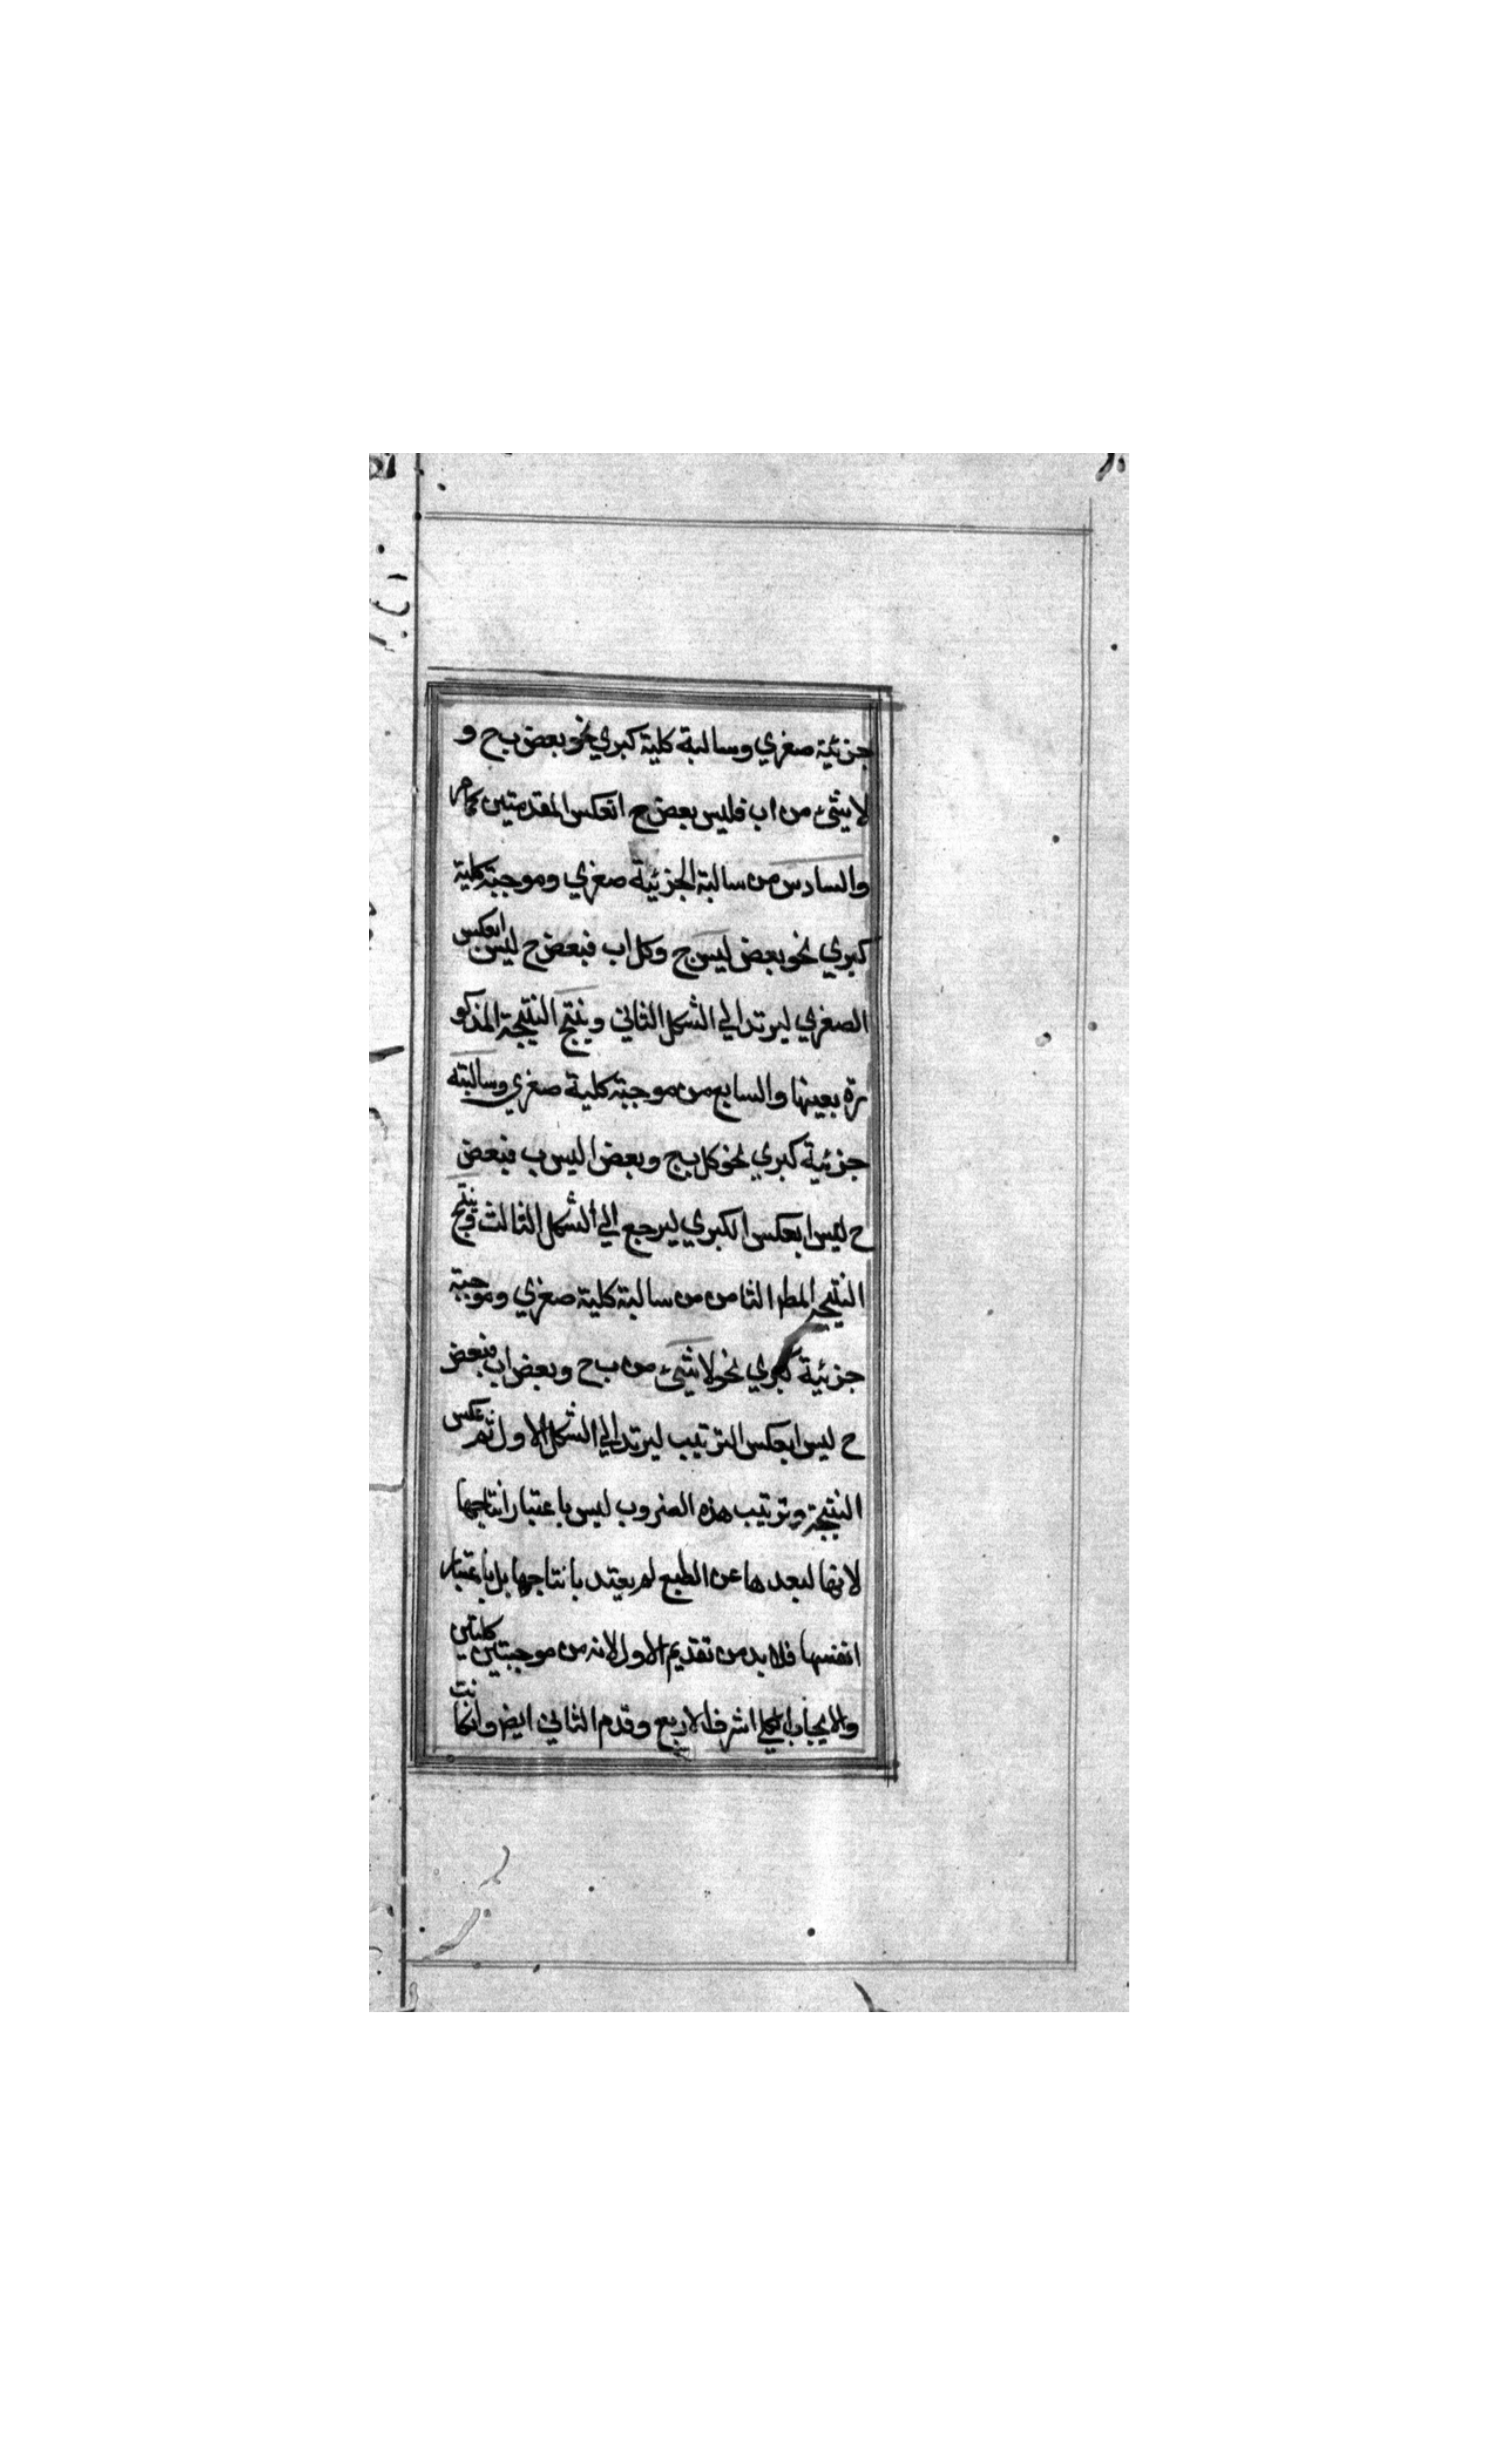 جزئية صغري وسالبة كلية كبري نحو بعض ب ح و
لا شئ من اب فليس بعض ح ا تعكس المقدمتين كما مر
والسادس من سالبة الجزئية صغري وموجبة كلية
كبري نحو بعض ليس ج وكل اب فبعض ح ليس ابعكس
الصغري ليرتد الي الشكل الثاني وينتج النتيجة المذكو
رة بعينها والسابع من موجبة كلية صغري وسالبته
جزئية كبري نحو كل ب ج وبعض اليس ب فبعض
ح ليس ابعكس الكبري ليرجع الي الشكل الثالث وينتج
النتيجة المط الثامن من سالبة كلية صغري وموجبة
جزئية كبري نحو لا شئ من ب ح وبعض اب فبعض
ح ليس ابعكس الترتيب ليرتد الي الشكل الاول ثم عكس
النتيجة وترتيب هذه الضروب ليس باعتبار انتاجها
لانها لبعدها عن الطبع لم يعتد بانتاجها بل باعتبار
انفسها فلا بد من تقديم الاول لانه من موجبتين كليتين
والايجاب الكلي اشرف الاربع وقدم الثاني ايض وانكانت